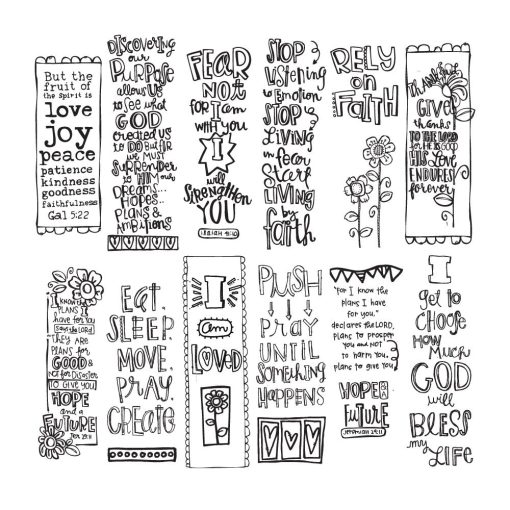 But the
fruit of
the spirit is
love
joy
peace
patience
kindness
goodness
faithfulness
Gal 5:22
DISCOVERING
our
PURPOSE
allows US
to see what
GOD
created us
to DO but first
we must
SURRENDER
to HIM our
DREAMS...
HOPES...
PLANS &
AMBITIONS
FEAR
NOT
for I am
with you
I
will
strengthen
YOU
ISAIAH 41:10
STOP
listening
to Emotion
STOP
LIVING
in fear
Start
LIVING
by
faith
RELY
on
FAITH
GIVE
thanks
TO THE LORD
for HE is GOOD
HIS LOVE
ENDURES
forever
I KNOW THE
PLANS I
have for YOU
says the LORD
"THEY ARE
PLANS FOR
GOOD &
not for DISASTER
TO GIVE YOU
HOPE
and a
FUTURE
JER 29:11
EAT.
SLEEP.
MOVE.
PRAY.
CREATE.
I
am
LOVED
PUSH
PRAY
UNTIL
SOMETHING
HAPPENS
"for I know the
plans I have
for you,"
declares the LORD,
plans to prosper
you and NOT
to harm you,
plans to give you
HOPE &
a
FUTURE
Jeremiah 29:11
I
get to
CHOOSE
HOW MUCH
GOD
will
BLESS
my
LIFE